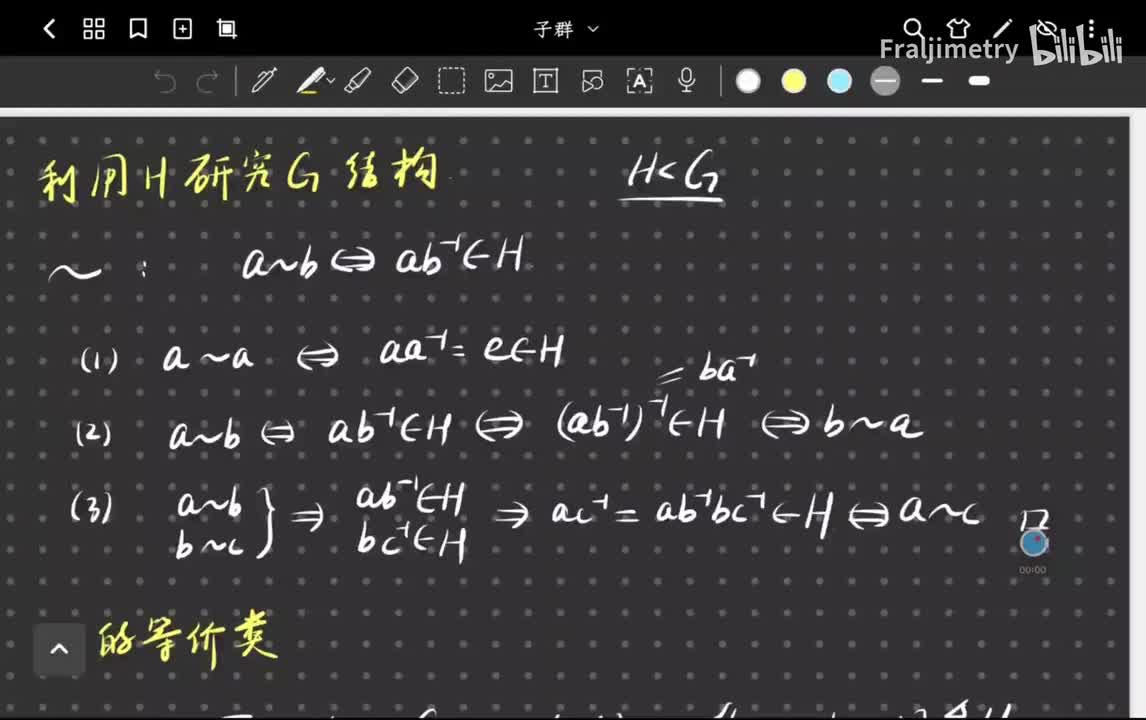 子群
Fraljimetry bilibili
利用H研究G结构
H<G
~ : a~b ⇔ ab⁻¹∈H
(1) a~a ⇔ aa⁻¹=e∈H
= ba⁻¹
(2) a~b ⇔ ab⁻¹∈H ⇔ (ab⁻¹)⁻¹∈H ⇔ b~a
(3) a~b
b~c } ⇒ ab⁻¹∈H
bc⁻¹∈H ⇒ ac⁻¹ = ab⁻¹bc⁻¹∈H ⇔ a~c □
00:00
的等价类